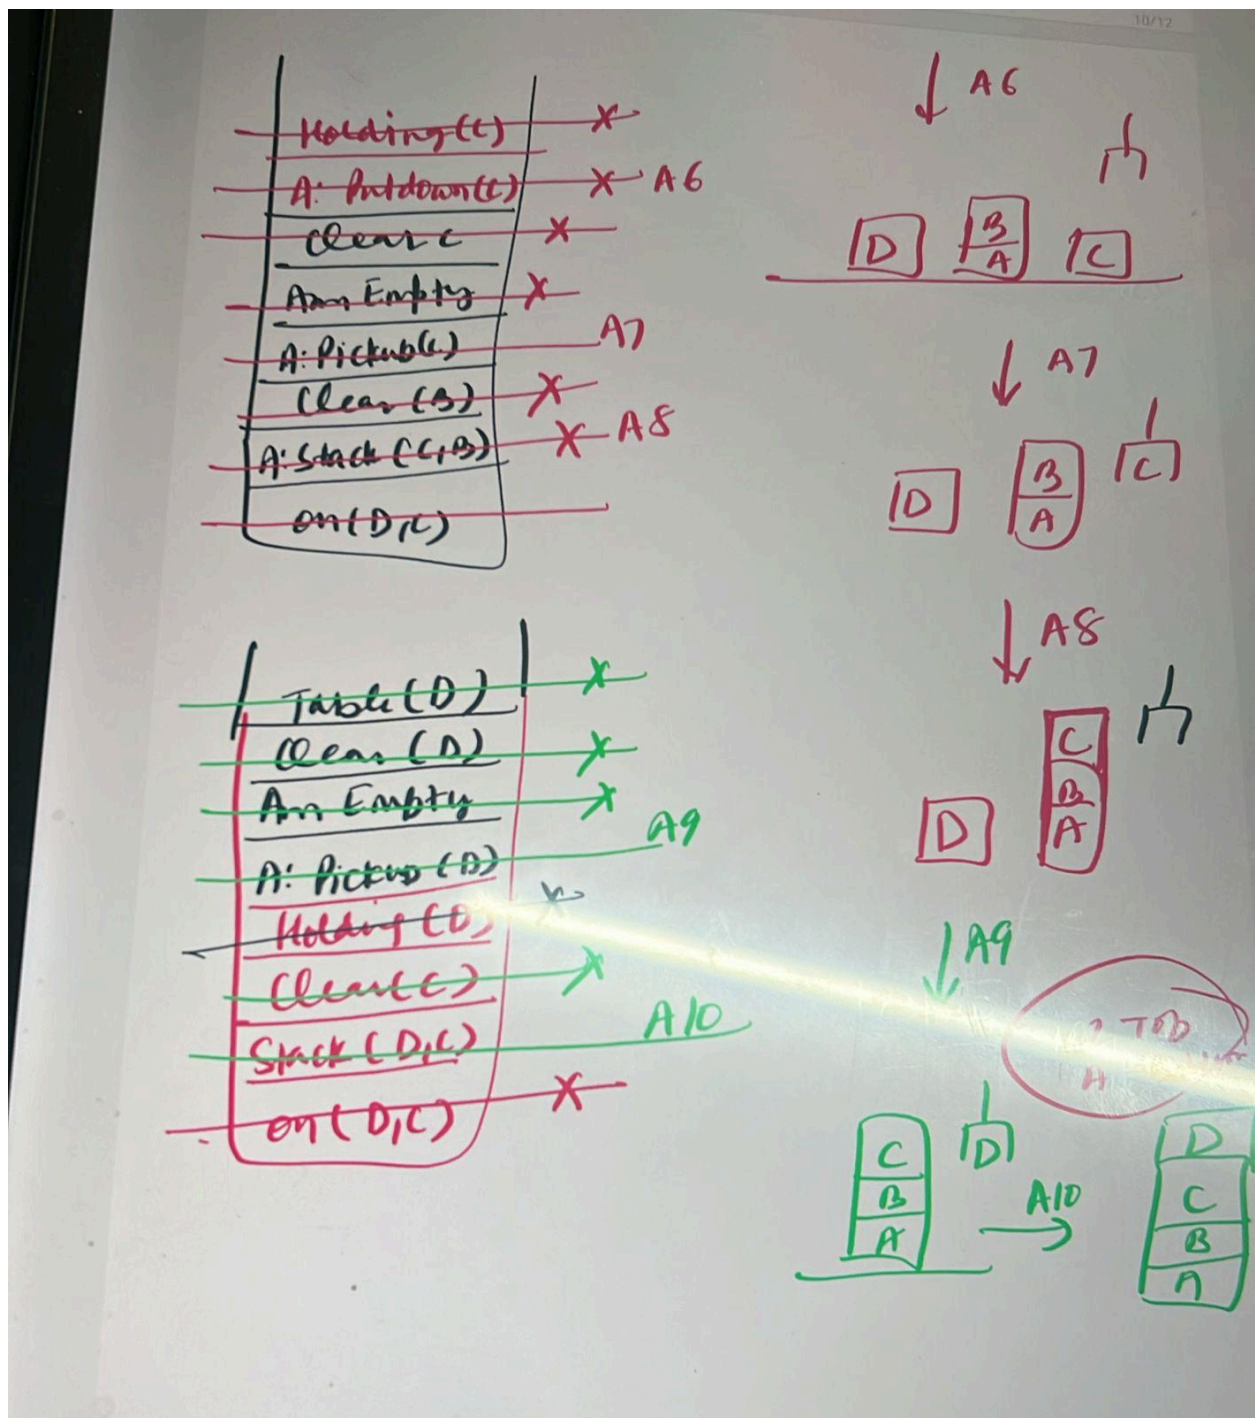 10/12
Holding(C)
A: Putdown(C) A6
Clear C
Arm Empty
A: Pickup(C) A7
Clear (B)
A: Stack (C,B) A8
on(D,C)
Table (D)
Clear (D)
Arm Empty
A: Pickup (D) A9
Holding (D)
Clear(C)
Stack (D,C) A10
on(D,C)
A6
D
B
A
C
A7
D
B
A
C
A8
D
C
B
A
A9
C
B
A
D
A10
D
C
B
A